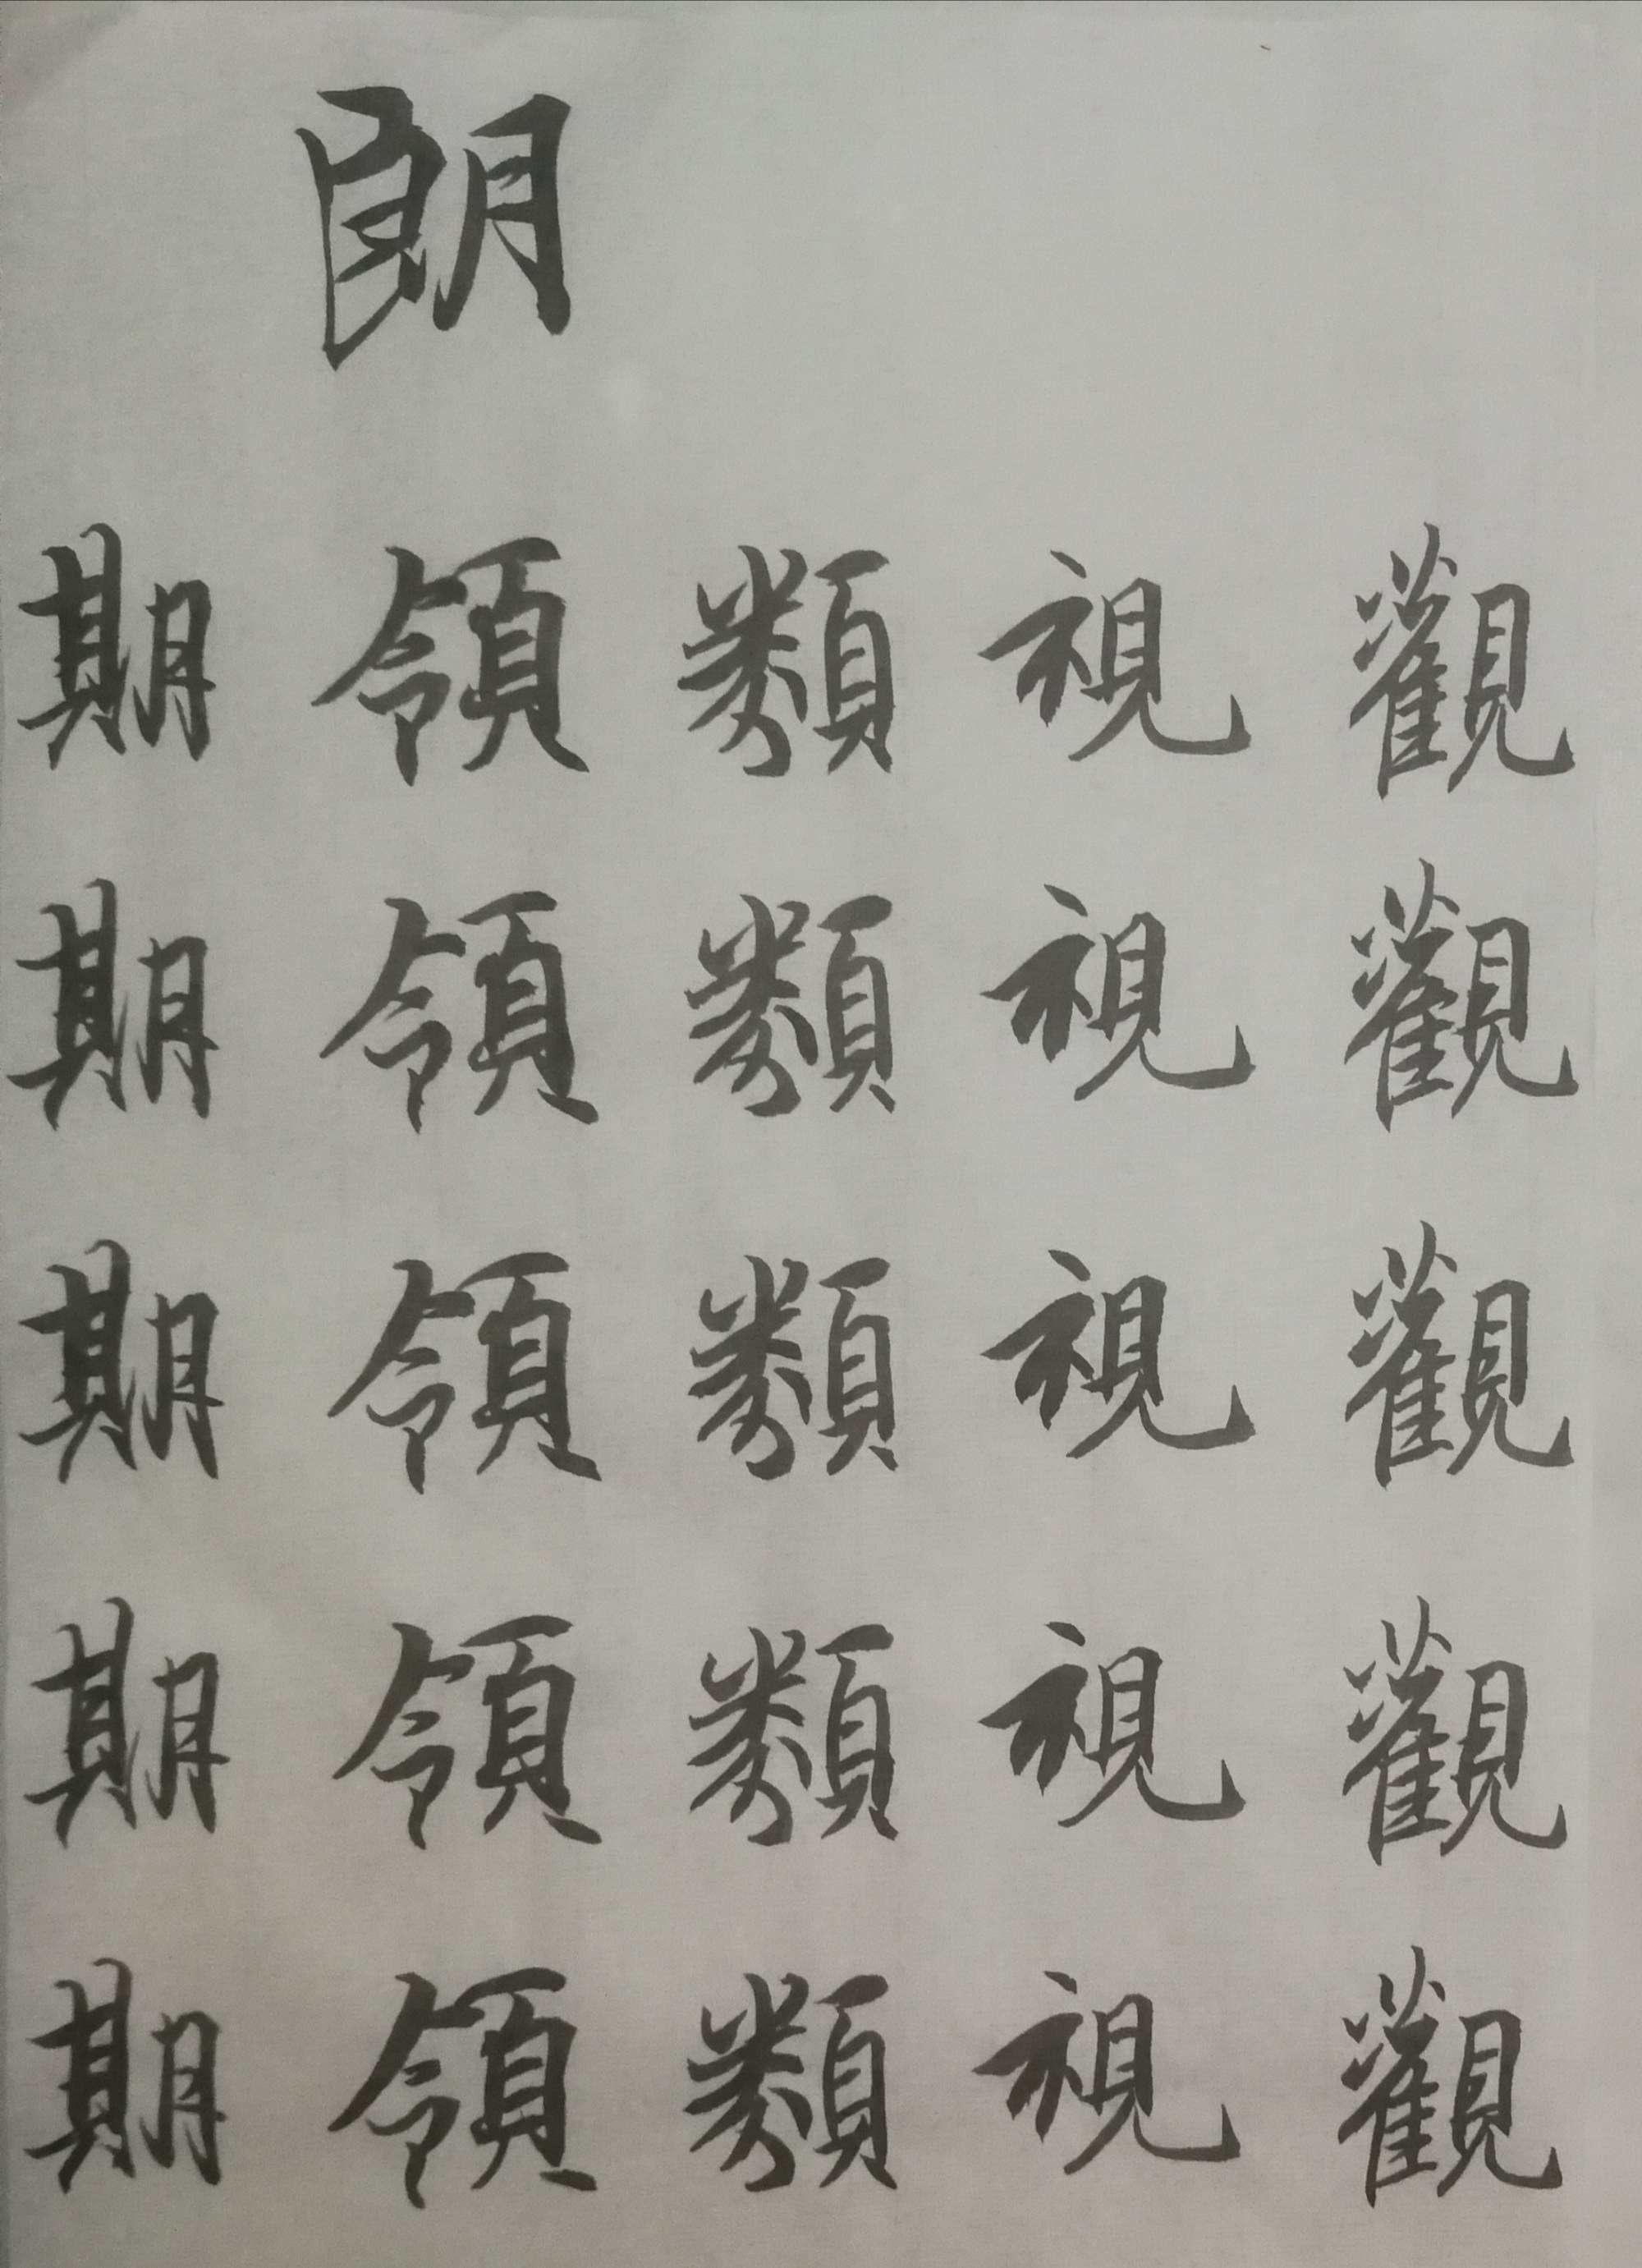 朗
期 領 類 視 觀
期 領 類 視 觀
期 領 類 視 觀
期 領 類 視 觀
期 領 類 視 觀